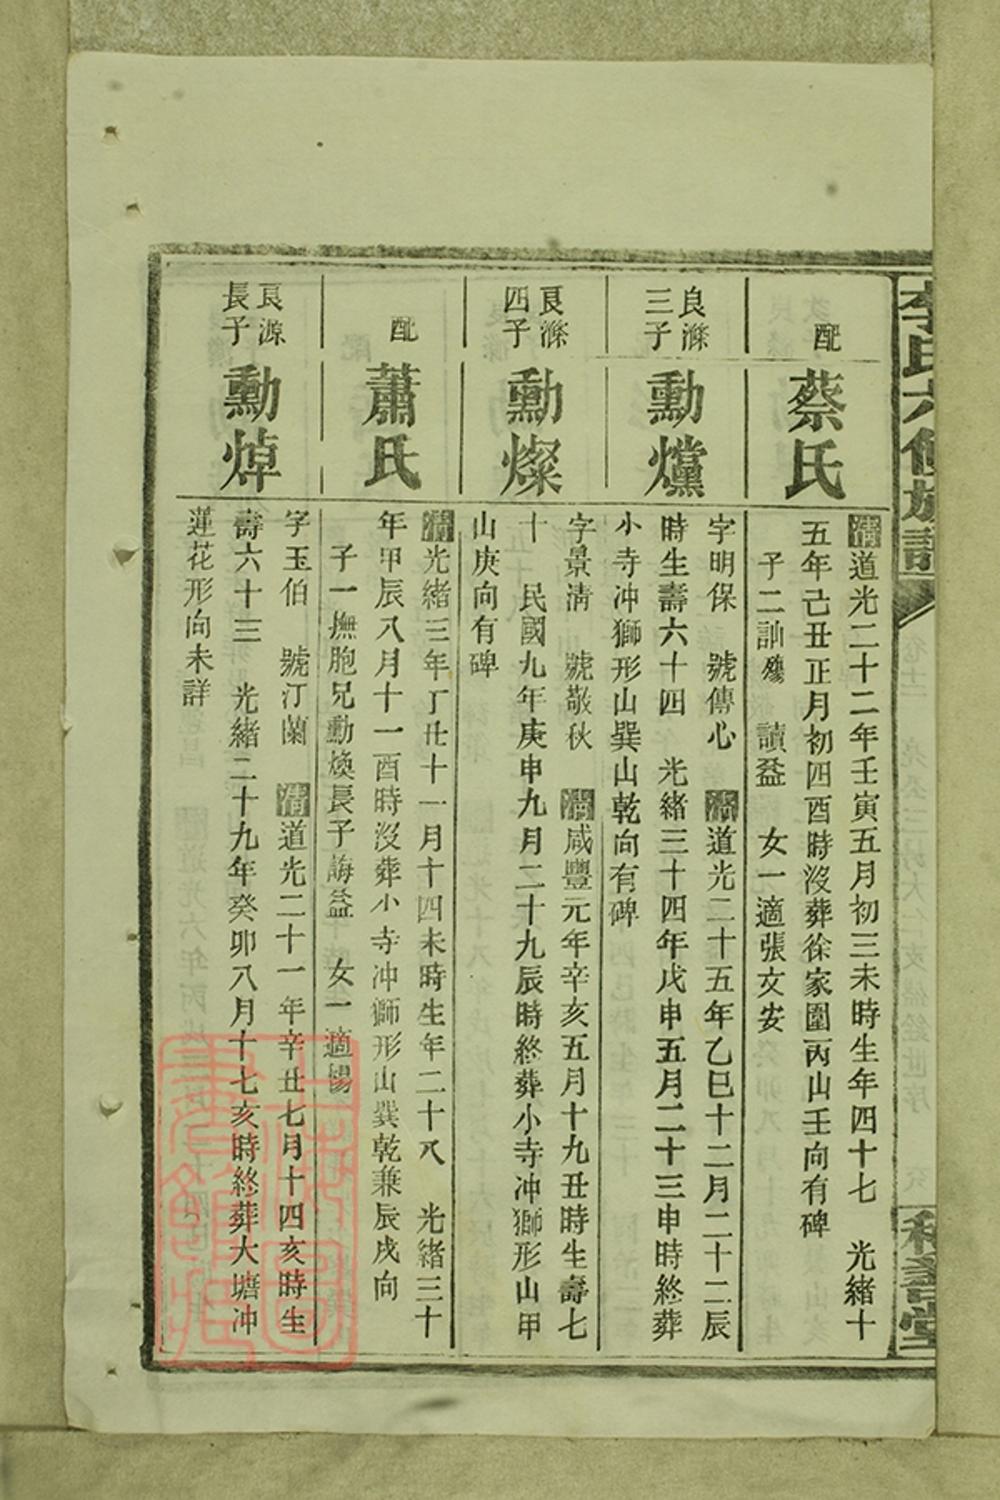 李氏六修族譜
配
蔡氏
清道光二十二年壬寅五月初三未時生年四十七 光緒十
五年己丑正月初四酉時沒葬徐家園丙山壬向有碑
子二訓 讀益 女一適張文安
良滁
三子
勳爣
字明保 號傳心 清道光二十五年乙巳十二月二十二辰
時生壽六十四 光緒三十四年戊申五月二十三申時終葬
小寺冲獅形山巽山乾向有碑
良滁
四子
勳燦
字景清 號敬秋 清咸豐元年辛亥五月十九丑時生壽七
十 民國九年庚申九月二十九辰時終葬小寺冲獅形山甲
山庚向有碑
配
蕭氏
清光緒三年丁丑十一月十四未時生年二十八 光緒三十
年甲辰八月十一酉時沒葬小寺冲獅形山巽乾兼辰戌向
子一撫胞兄勳煥長子誨益 女一適楊
良源
長子
勳焯
字玉伯 號汀蘭 清道光二十一年辛丑七月十四亥時生
壽六十三 光緒二十九年癸卯八月十七亥時終葬大塘冲
蓮花形向未詳